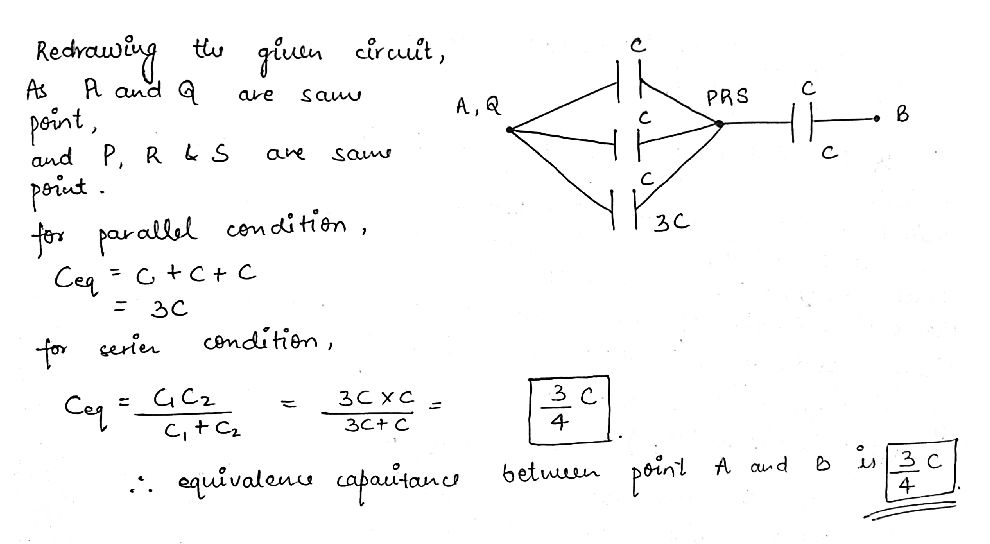 Redrawing the given circuit,
As A and Q are same
point,
and P, R & S are same
point.
for parallel condition,
Ceq = C + C + C
= 3C
for series condition,
Ceq = C₁C₂ / C₁ + C₂ = 3C × C / 3C + C = 3/4 C.
∴ equivalence capacitance between point A and B is 3/4 C.
A, Q
C
C
C
3C
PRS
C
C
B